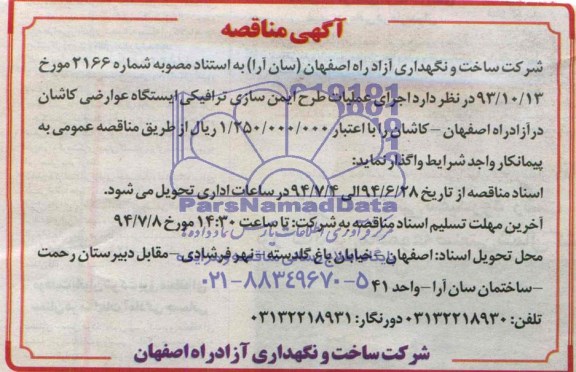 آگهی مناقصه
شرکت ساخت و نگهداری آزاد راه اصفهان (سان آرا) به استناد مصوبه شماره ۲۱۶۶ مورخ
۹۳/۱۰/۱۳ در نظر دارد اجرای عملیات طرح ایمن سازی ترافیکی ایستگاه عوارضی کاشان
در آزاد راه اصفهان – کاشان را با اعتبار ۱/۲۵۰/۰۰۰/۰۰۰ ریال از طریق مناقصه عمومی به
پیمانکار واجد شرایط واگذار نماید:
اسناد مناقصه از تاریخ ۹۴/۶/۲۸ الی ۹۴/۷/۴ در ساعات اداری تحویل می شود.
ParsNamadData
آخرین مهلت تسلیم اسناد مناقصه به شرکت: تا ساعت ۱۴:۳۰ مورخ ۹۴/۷/۸
محل تحویل اسناد: اصفهان – خیابان باغ گلدسته – نهر فرشادی – مقابل دبیرستان رحمت
–ساختمان سان آرا –واحد ۴۱
۰۲۱-۸۸۳۴۹۶۷۰-۵
تلفن: ۰۳۱۳۲۲۱۸۹۳۰ دورنگار: ۰۳۱۳۲۲۱۸۹۳۱
شرکت ساخت و نگهداری آزاد راه اصفهان